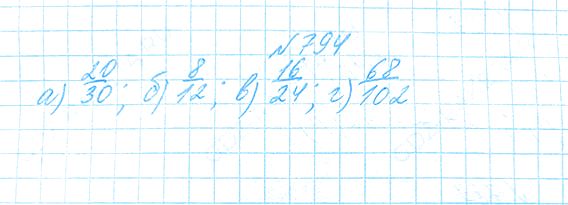 №794
а) 20/30; б) 8/12; в) 16/24; г) 68/102